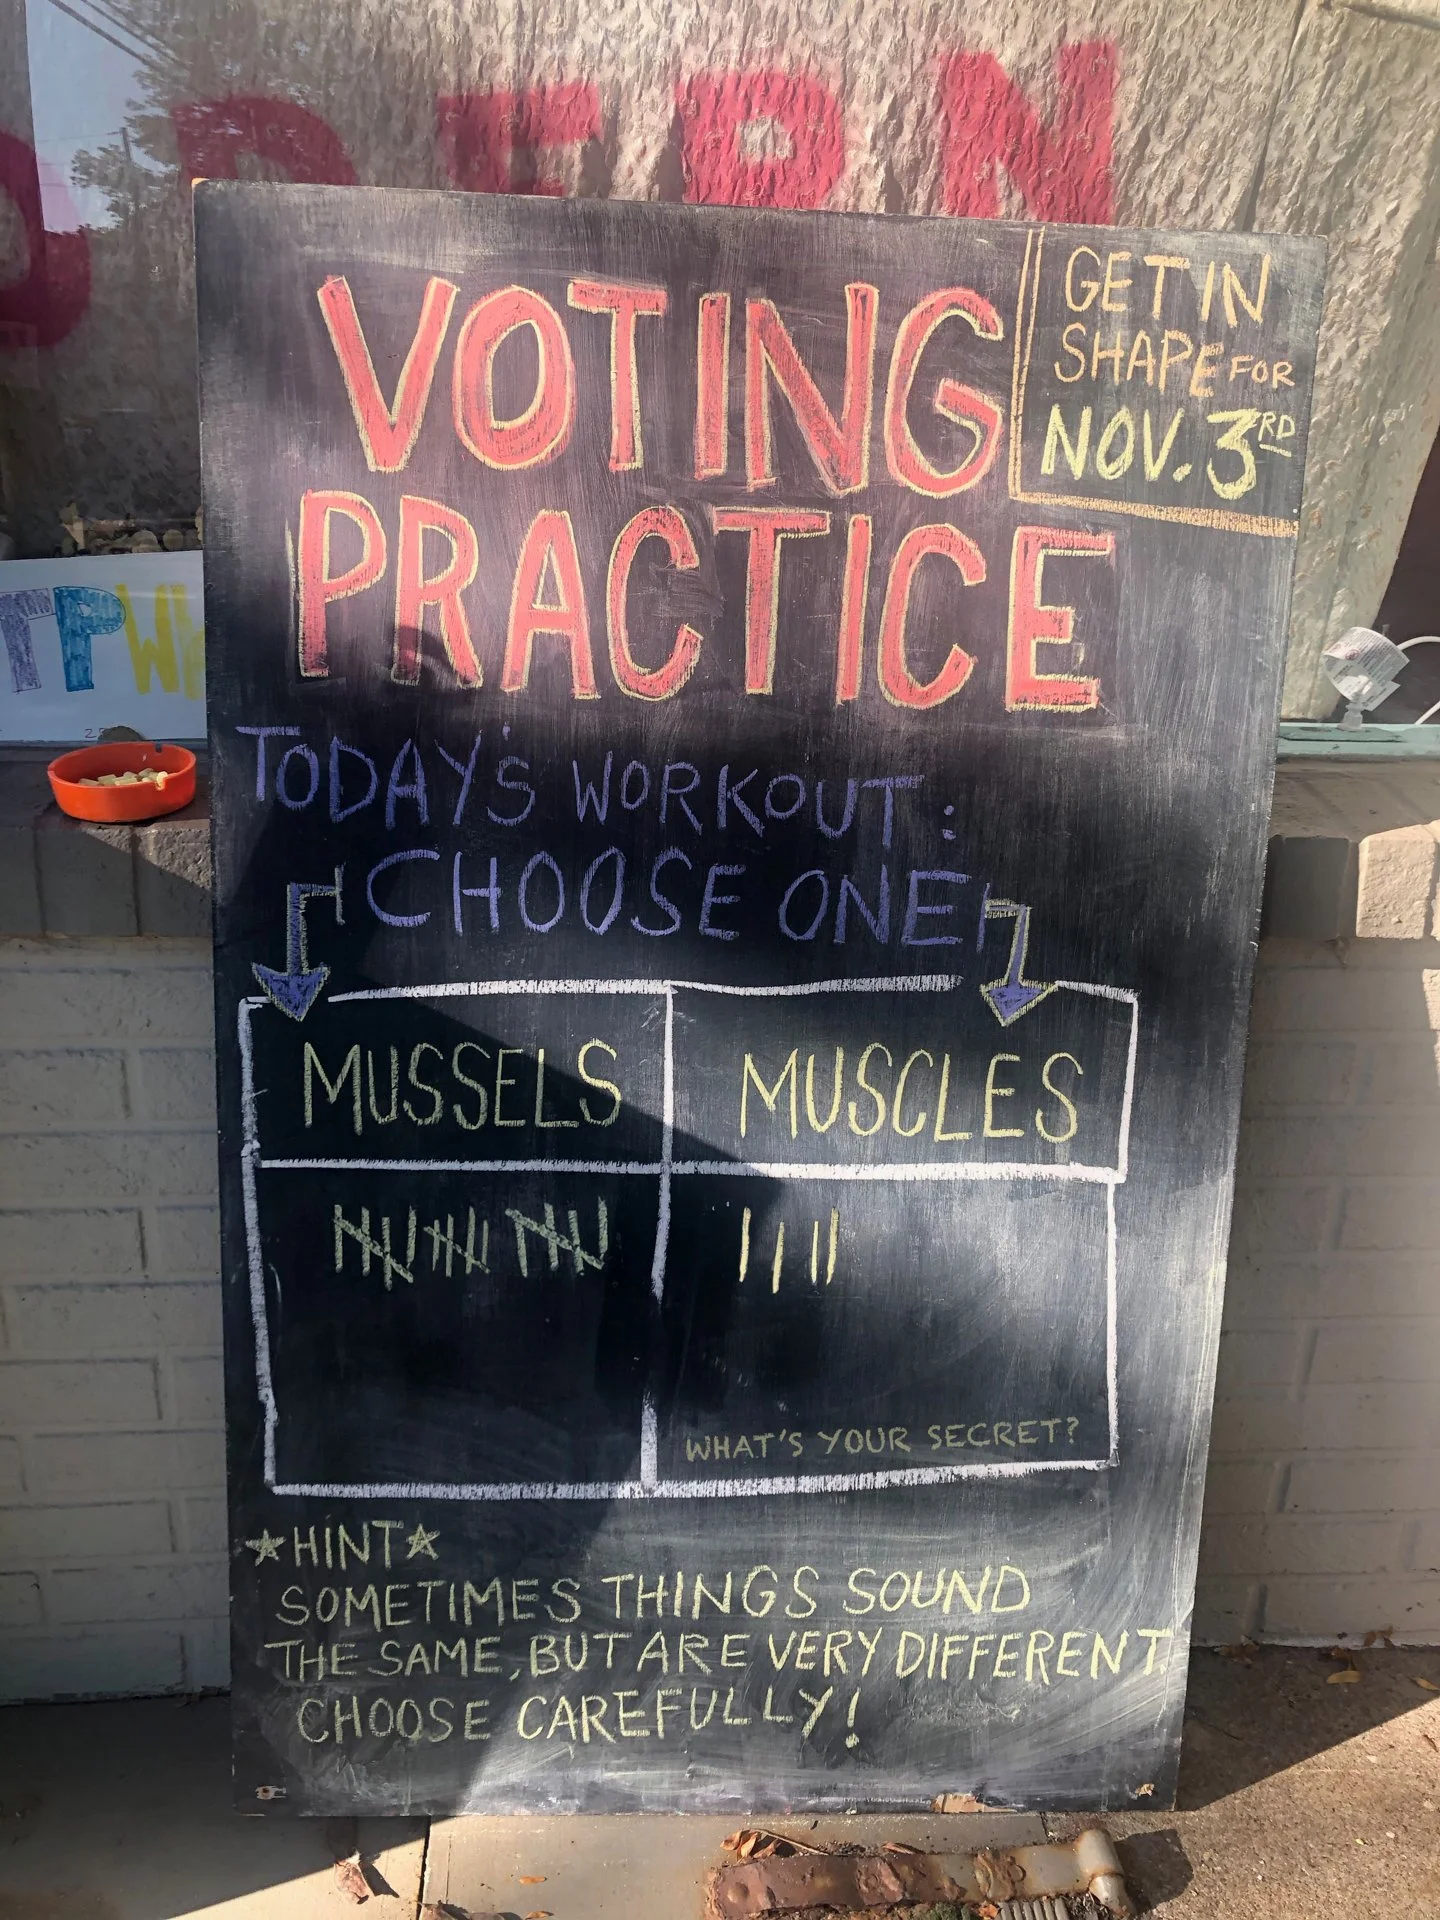 DERN
GET IN
SHAPE FOR
NOV. 3RD
VOTING
PRACTICE
TPW
TODAY'S WORKOUT:
CHOOSE ONE
MUSSELS
MUSCLES
WHAT'S YOUR SECRET?
☆HINT☆
SOMETIMES THINGS SOUND
THE SAME, BUT ARE VERY DIFFERENT
CHOOSE CAREFULLY!